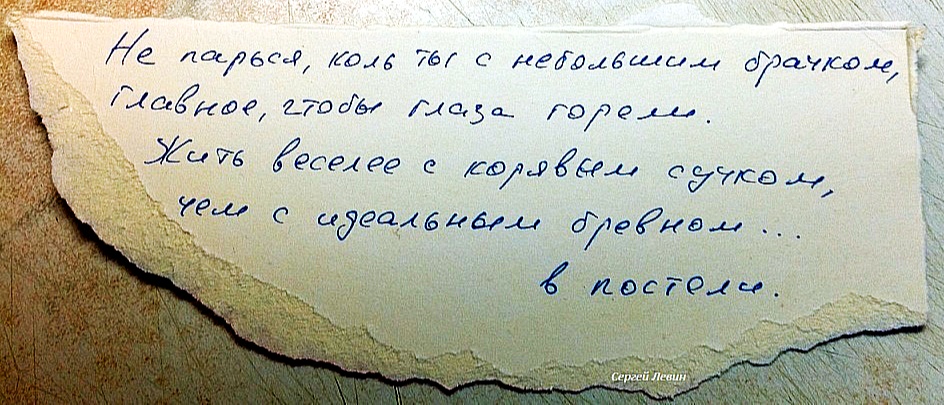 Не парься, коль ты с небольшим брачком,
главное, чтобы глаза горели.
Жить веселее с корявым сучком,
чем с идеальным бревном...
в постели.
Сергей Левин